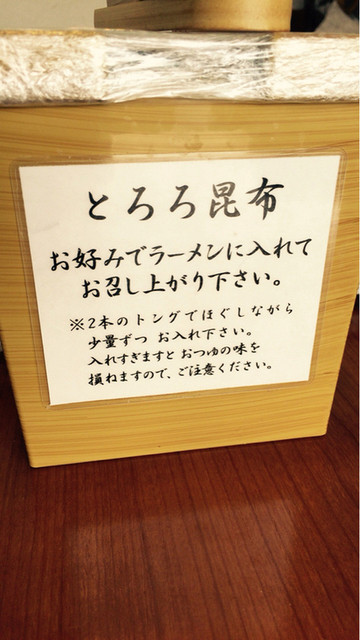 とろろ昆布
お好みでラーメンに入れて
お召し上がり下さい。
※2本のトングでほぐしながら
少量ずつ お入れ下さい。
入れすぎますと おつゆの味を
損ねますので、ご注意ください。